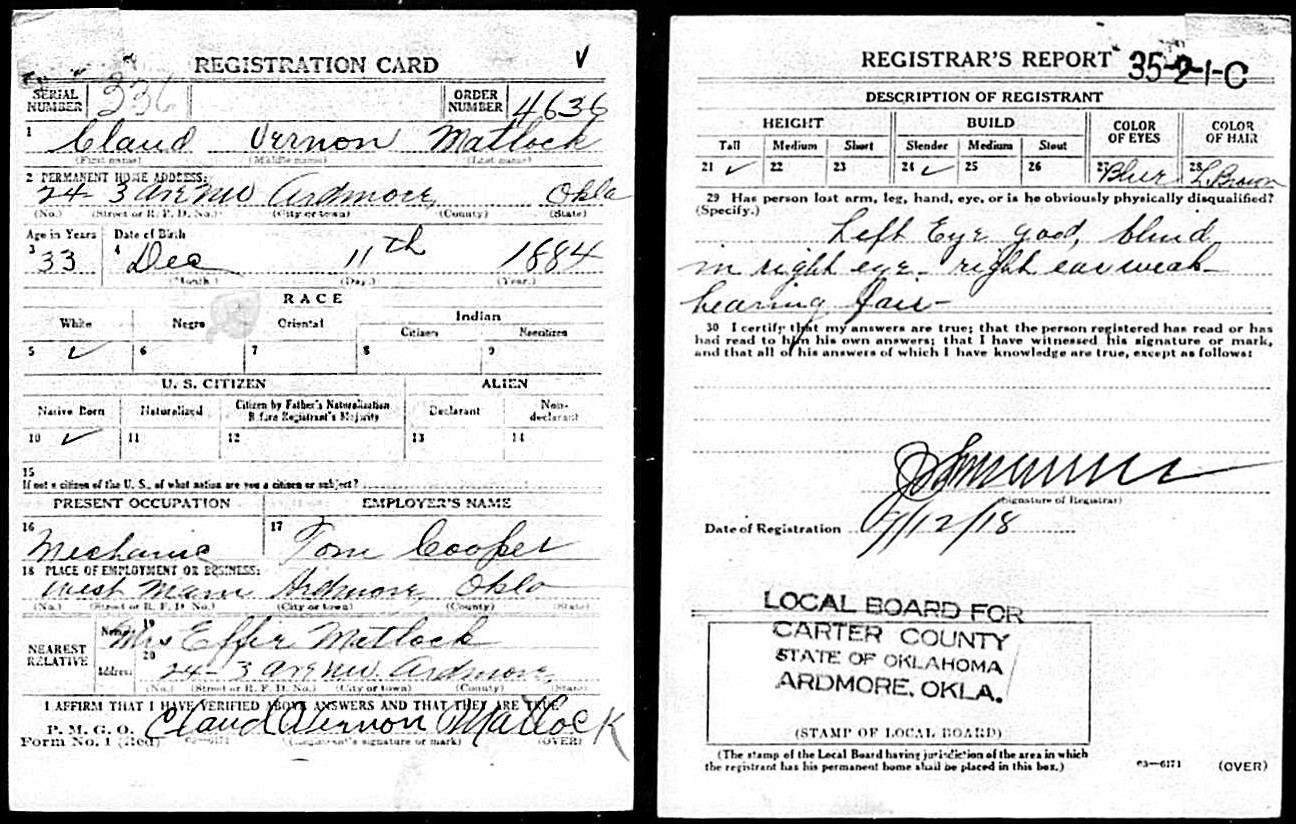 REGISTRATION CARD V
SERIAL NUMBER 336 ORDER NUMBER 4636
1 Claud Vernon Matlock
(First name) (Middle name) (Last name)
2 PERMANENT HOME ADDRESS:
24- 3 ave NW Ardmore, Okla
(No.) (Street or R. F. D. No.) (City or town) (County) (State)
Age in Years Date of Birth
3 33 4 Dec 11th 1884
(Month) (Day) (Year)
RACE
White Negro Oriental Indian
Citizen Noncitizen
5 ✓ 6 7 8 9
U. S. CITIZEN ALIEN
Native Born Naturalized Citizen by Father's Naturalization Before Registrant's Majority Declarant Non-declarant
10 ✓ 11 12 13 14
15
If not a citizen of the U. S., of what nation are you a citizen or subject?
PRESENT OCCUPATION EMPLOYER'S NAME
16 Mechanic 17 Tom Cooper
18 PLACE OF EMPLOYMENT OR BUSINESS:
West Main Ardmore, Okla
(No.) (Street or R. F. D. No.) (City or town) (County) (State)
NEAREST RELATIVE Name 19 Mrs Effie Matlock
Address 20 24- 3 ave NW. Ardmore,
(No.) (Street or R. F. D. No.) (City or town) (County) (State)
I AFFIRM THAT I HAVE VERIFIED ABOVE ANSWERS AND THAT THEY ARE TRUE
P. M. G. O.
Form No. 1 (Red) 03—6171 Claud Vernon Matlock
(Registrant's signature or mark) (OVER)
REGISTRAR'S REPORT 35-2-1-C
DESCRIPTION OF REGISTRANT
HEIGHT BUILD COLOR OF EYES COLOR OF HAIR
Tall Medium Short Slender Medium Stout
21 ✓ 22 23 24 ✓ 25 26 27 Blue 28 L. Brown
29 Has person lost arm, leg, hand, eye, or is he obviously physically disqualified?
(Specify.)
Left Eye good, blind
in right eye - right ear weak
hearing fair -
30 I certify that my answers are true; that the person registered has read or has
had read to him his own answers; that I have witnessed his signature or mark,
and that all of his answers of which I have knowledge are true, except as follows:
(Signature of Registrar)
Date of Registration 9/12/18
LOCAL BOARD FOR
CARTER COUNTY
STATE OF OKLAHOMA
ARDMORE, OKLA.
(STAMP OF LOCAL BOARD)
(The stamp of the Local Board having jurisdiction of the area in which
the registrant has his permanent home shall be placed in this box.)
03—6171 (OVER)